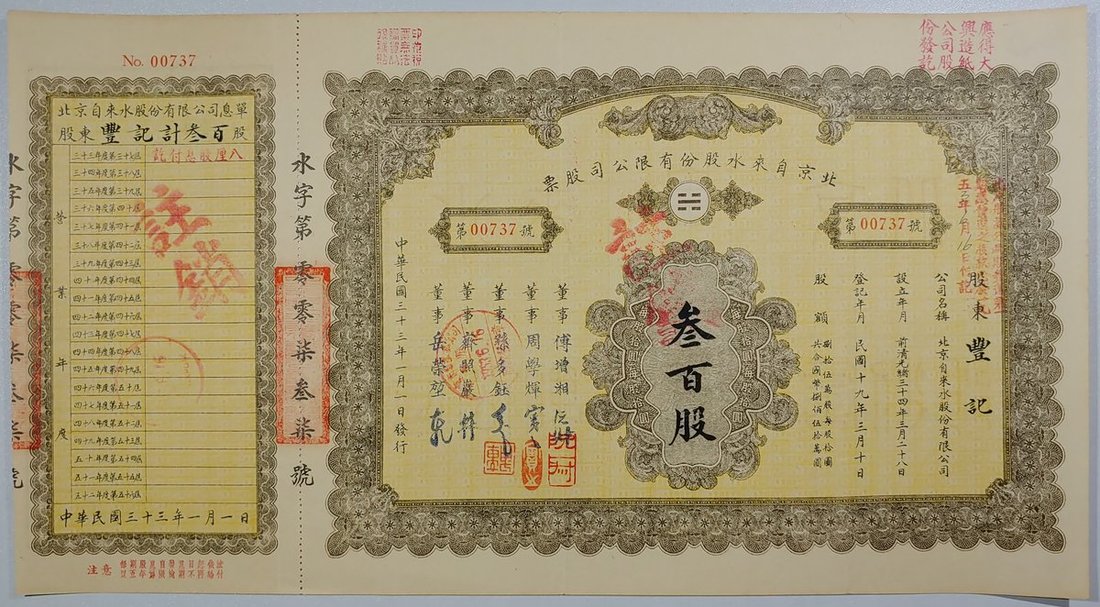 應得大
興造紙
公司股
份發訖
北京自來水股份有限公司股票
第00737號
第00737號
股東豐記
公司名稱 北京自來水股份有限公司
設立年月 前清光緒三十四年三月二十八日
登記年月 民國十九年三月十日
股額 捌拾伍萬股每股拾圓
共合國幣捌佰伍拾萬圓
叁百股
董事 傅增湘
董事 周學煇
董事 孫多鈺
董事
董事 岳榮堃
中華民國三十三年一月一日發行
水字第零零柒叁柒號
No. 00737
北京自來水股份有限公司息單
股東豐記計叁百股
營業年度
三十三年度第三十七區 八厘股息付訖
三十四年度第三十八區
三十五年度第三十九區
三十六年度第四十區
三十七年度第四十一區
三十八年度第四十二區
三十九年度第四十三區
四十年度第四十四區
四十一年度第四十五區
四十二年度第四十六區
四十三年度第四十七區
四十四年度第四十八區
四十五年度第四十九區
四十六年度第五十區
四十七年度第五十一區
四十八年度第五十二區
四十九年度第五十三區
五十年度第五十四區
五十一年度第五十五區
五十二年度第五十六區
註銷
中華民國三十三年一月一日
注意
水字第
號